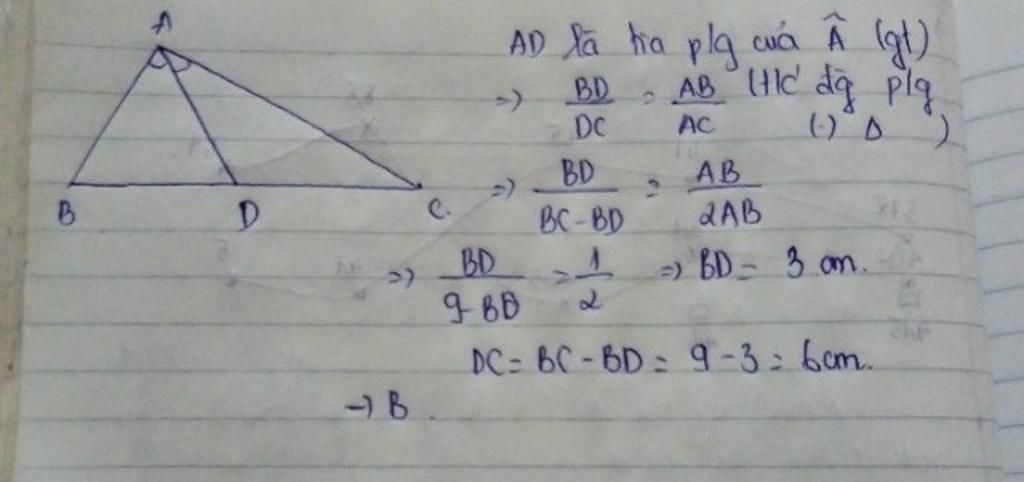 A
B
D
C.
AD là tia p/g của Â (gt)
=> BD/DC = AB/AC (t/c đg p/g
(.) Δ )
=> BD/BC-BD = AB/2AB
=> BD/9-BD = 1/2 => BD = 3 cm.
DC = BC - BD = 9 - 3 = 6cm.
→ B.